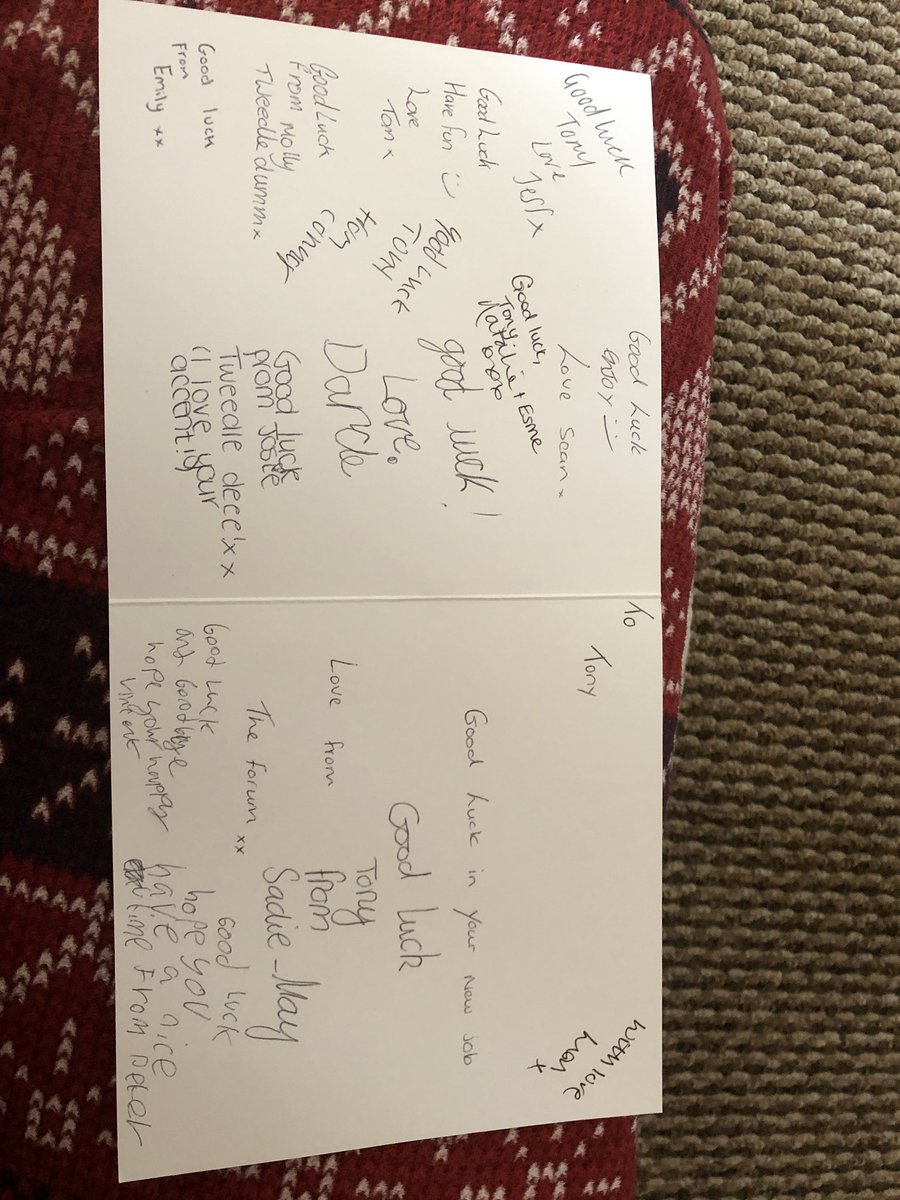 Good luck
Tony
Love
Jess x
Good Luck
Have fun :)
Love
Tom x
Good Luck
From Molly
Tweedle dumm x
Good luck
From
Emily xx
Good Luck
:)
Love Sean x
Good luck,
Tony
Natalie + Esme
good luck!
Love.
Good luck
from Josie
Tweedle deee!x x
"I love your
accent!"
To
Tony
Good Luck in your New job
Love from
The forum xx
Good Luck
Tony
from
Sadie-May
Good Luck
and Goodbye
hope your happy
Vincent
Good Luck
hope you
have a nice
time From Peter
love